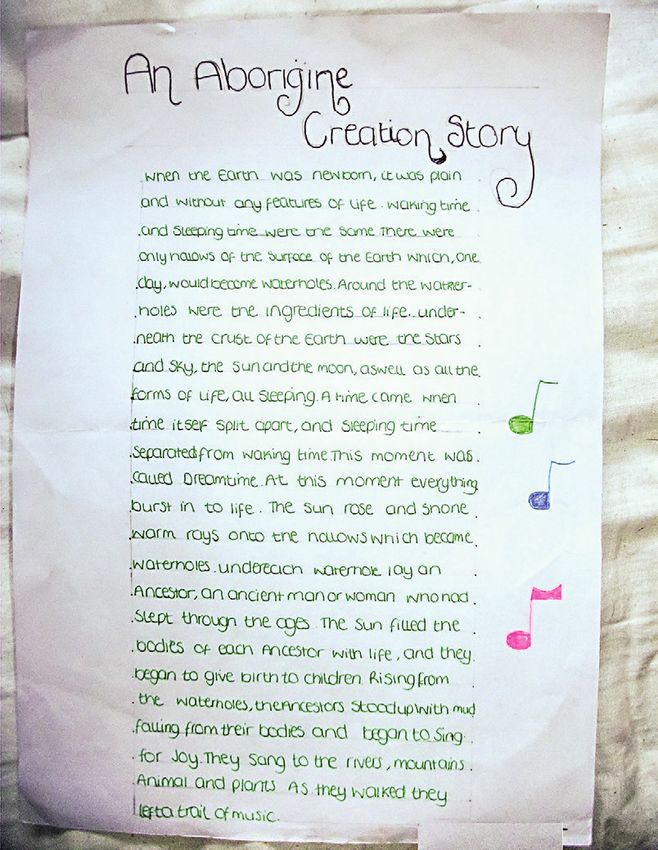 An Aborigine
Creation Story
when the Earth was newborn, it was plain
and without any features of life. waking time
and sleeping time were the same There were
only hallows of the surface of the Earth which, one
day, would become waterholes. Around the water-
holes were the ingredients of life. under-
neath the crust of the Earth were the stars
and sky, the sun and the moon, aswell as all the
forms of life, all sleeping. A time came when
time itself split apart, and sleeping time
separated from waking time. This moment was
called Dreamtime. At this moment everything
burst in to life. The sun rose and shone
warm rays onto the hallows which became
waterholes. undereach waterhole lay an
Ancestor, an ancient man or woman who had
slept through the ages. The sun filled the
bodies of each Ancestor with life, and they
began to give birth to children. Rising from
the waterholes, the Ancestors stood up with mud
falling from their bodies and began to sing
for joy. They sang to the rivers, mountains
Animal and plants As they walked they
left a trail of music.